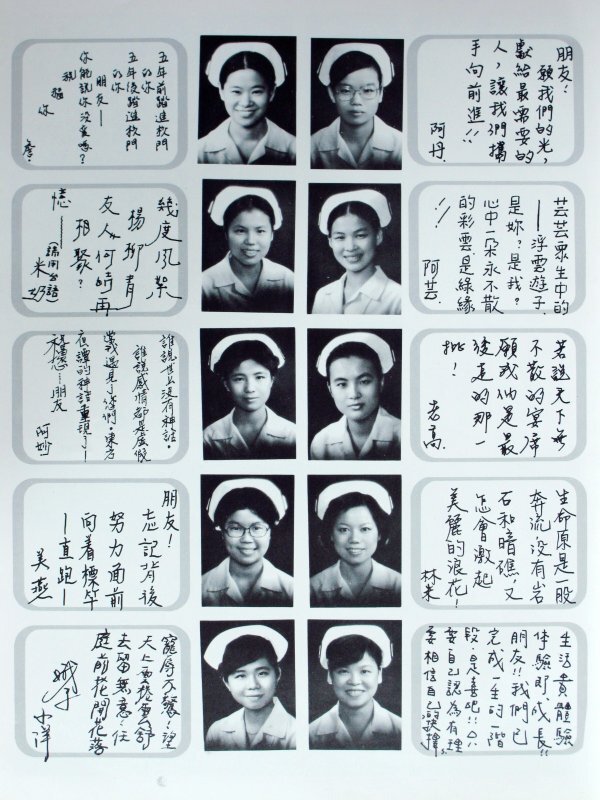 五年前踏進校門
的你
五年後踏進校門
的你
朋友—
你能說你沒變嗎?
祝福
你
朋友!
願我們的光,
獻給最需要的
人,讓我們攜
手向前進!!
阿丹.
幾度風絮
楊柳青
友人何時再
相聚?
憶——
(請用台語
芸芸眾生中的
—浮雲遊子.
是妳?是我?
心中一朵永不散
的彩雲是綠緣
!!
阿芸.
誰說世上沒有神話.
誰說感情都是虛假
當我遇見了你們.東方
夜譚的神話重現了—
祝福您…朋友
阿妙
若說天下無
不散的宴席
願我們是最
後走的那一
批!
老高.
朋友!
忘記背後
努力面前
向着標竿
—直跑—
美燕
生命原是一股
奔流沒有岩
石和暗礁又
怎會激起
美麗的浪花!
寵辱不驚.望
天上雲捲雲舒
去留無意.任
庭前花開花落
小洋
生活貴體驗
体驗即成長!!
朋友!!我們已
完成一生的一階
段.是喜吧!!
要自己認為有理
要相信自己的抉擇.